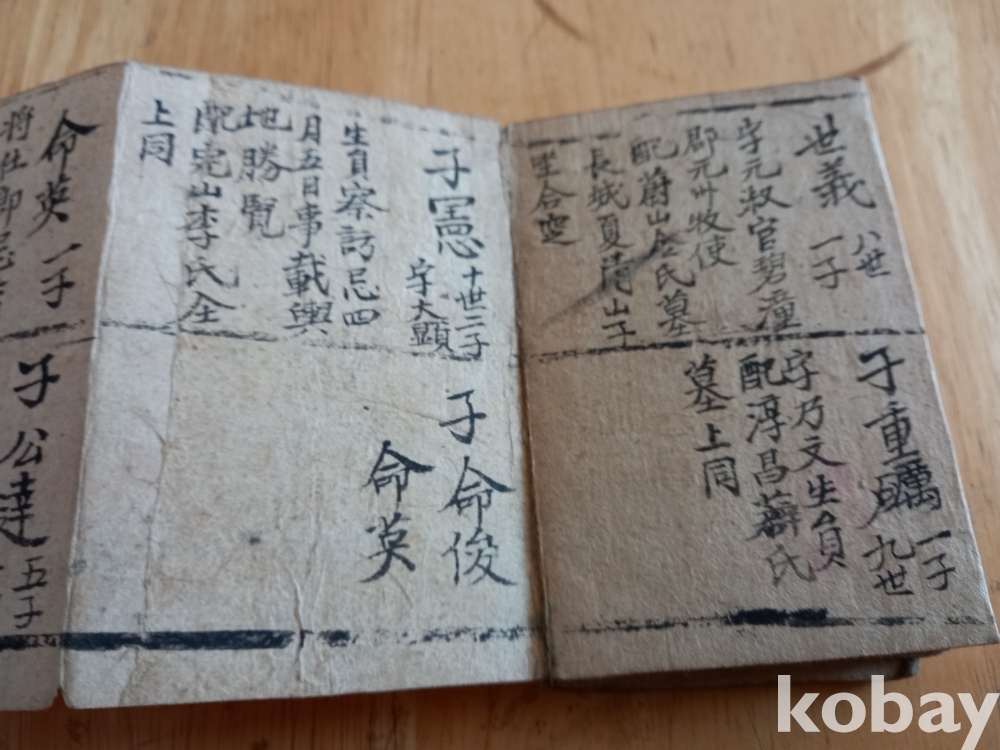 世義 八世
一子
字元叔官碧潼
郡元州牧使
配蔚山金氏墓
長城夏淸山子
坐合窆
子重礪 一子
九世
字乃文生員
配淳昌薛氏
墓上同
子憲 十世二子
字大顯
生員察訪忌四
月五日事載輿
地勝覽
配完山李氏仝
上同
子命俊
命英
命英 一子
將仕郎忌
子公達 五子
kobay